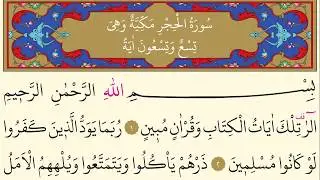 سُورَةُ الْحِجْرِ مَكِّيَّةٌ وَهِيَ
تِسْعٌ وَتِسْعُونَ اٰيَةً
بِسْمِ اللّٰهِ الرَّحْمٰنِ الرَّحِيمِ
الٓرٰ تِلْكَ اٰيَاتُ الْكِتَابِ وَقُرْاٰنٍ مُبٖينٍ ١ رُبَمَا يَوَدُّ الَّذٖينَ كَفَرُوا
لَوْ كَانُوا مُسْلِمٖينَ ٢ ذَرْهُمْ يَأْكُلُوا وَيَتَمَتَّعُوا وَيُلْهِهِمُ الْاَمَلُ